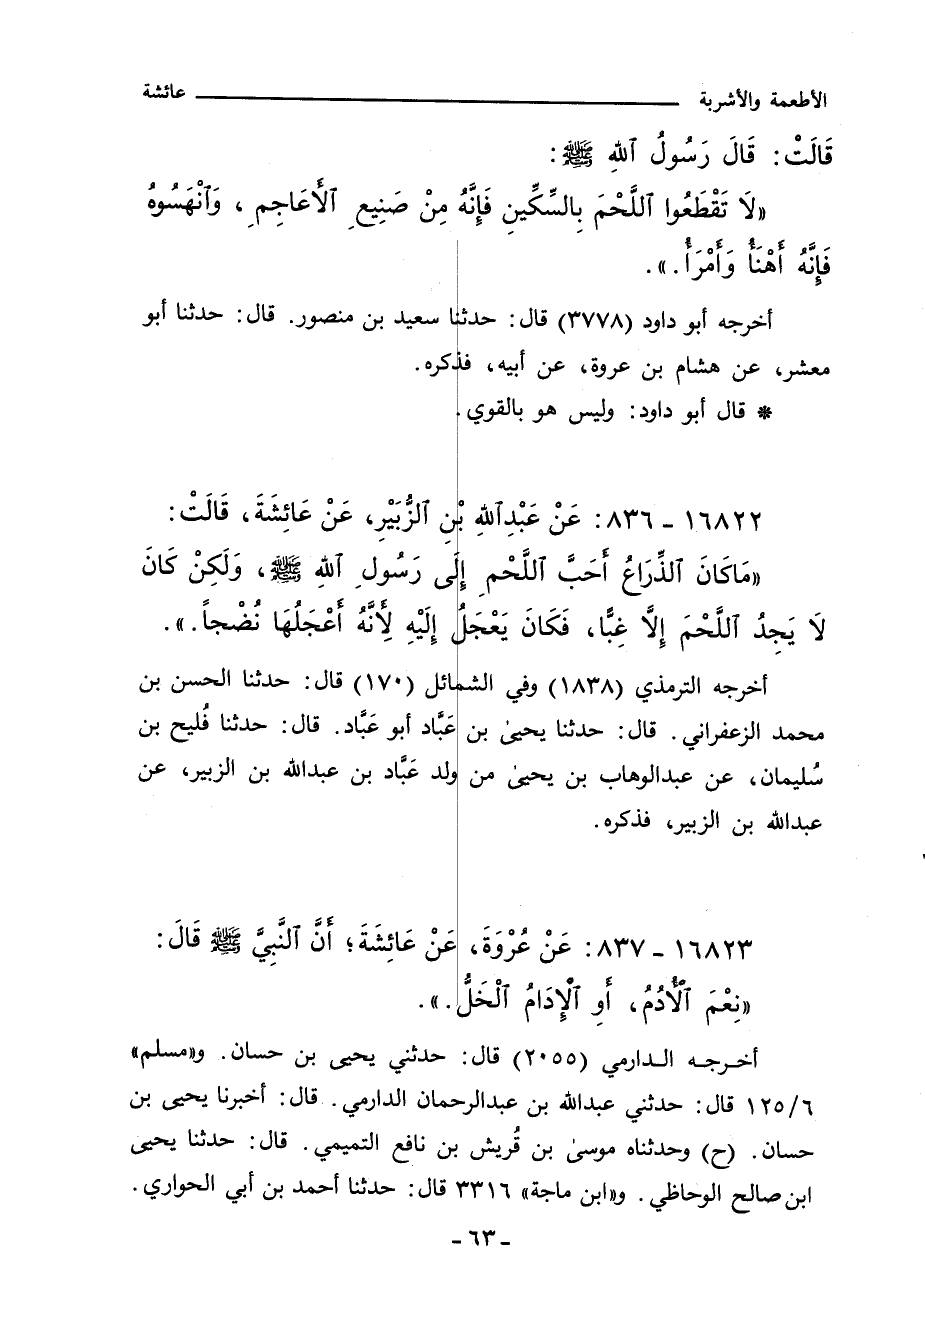 الأطعمة والأشربة ـــــــــــ عائشة
قَالَتْ: قَالَ رَسُولُ ٱللهِ ﷺ:
«لَا تَقْطَعُوا ٱللَّحْمَ بِالسِّكِّينِ فَإِنَّهُ مِنْ صَنِيعِ ٱلْأَعَاجِمِ، وَٱنْهَسُوهُ
فَإِنَّهُ أَهْنَأُ وَأَمْرَأُ.».
أخرجه أبو داود (٣٧٧٨) قال: حدثنا سعيد بن منصور. قال: حدثنا أبو
معشر، عن هشام بن عروة، عن أبيه، فذكره.
* قال أبو داود: وليس هو بالقوي.
١٦٨٢٢ ـ ٨٣٦: عَنْ عَبْدِٱللهِ بْنِ ٱلزُّبَيْرِ، عَنْ عَائِشَةَ، قَالَتْ:
«مَاكَانَ ٱلذِّرَاعُ أَحَبَّ ٱللَّحْمِ إِلَى رَسُولِ ٱللهِ ﷺ، وَلَكِنْ كَانَ
لَا يَجِدُ ٱللَّحْمَ إِلَّا غِبًّا، فَكَانَ يَعْجَلُ إِلَيْهِ لِأَنَّهُ أَعْجَلُهَا نُضْجاً.».
أخرجه الترمذي (١٨٣٨) وفي الشمائل (١٧٠) قال: حدثنا الحسن بن
محمد الزعفراني. قال: حدثنا يحيىٰ بن عَبَّاد أبو عَبَّاد. قال: حدثنا فُليح بن
سُليمان، عن عبدالوهاب بن يحيىٰ من ولد عَبَّاد بن عبدالله بن الزبير، عن
عبدالله بن الزبير، فذكره.
١٦٨٢٣ ـ ٨٣٧: عَنْ عُرْوَةَ، عَنْ عَائِشَةَ؛ أَنَّ ٱلنَّبِيَّ ﷺ قَالَ:
«نِعْمَ ٱلْأُدُمُ، أَوِ ٱلْإِدَامُ ٱلْخَلُّ.».
أخرجه الدارمي (٢٠٥٥) قال: حدثني يحيى بن حسان. و«مسلم»
١٢٥/٦ قال: حدثني عبدالله بن عبدالرحمان الدارمي. قال: أخبرنا يحيى بن
حسان. (ح) وحدثناه موسىٰ بن قُريش بن نافع التميمي. قال: حدثنا يحيى
ابن صالح الوحاظي. و«ابن ماجة» ٣٣١٦ قال: حدثنا أحمد بن أبي الحواري.
ـ ٦٣ ـ